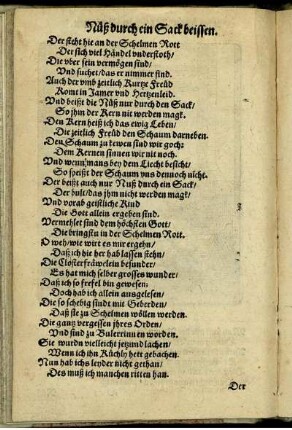 Nüß durch ein Sack beissen.
Der steht hie an der Schelmen Rott
Der sich viel Händel vnderstoth/
Die vber sein vermögen sind/
Vnd suchet/das er nimmer find.
Auch der vmb zeitlich Kurtz Freüd
Komt in Jamer vnd Hertzenleid.
Vnd beißt die Nüß nur durch den Sack/
So jhm der Kern nit werden mag.
Den Kern heiß ich das ewig Leben/
Die zeitlich Freüd den Schaum darneben.
Den Schaum zu kewen sind wir goch:
Dem Kernen sinnen wir nit noch.
Vnd wenn mans bey dem Liecht besicht/
So speißt der Schaum vns dennoch nicht.
Der beißt auch nur Nuß durch ein Sack/
Der bult/das jhm nicht werden mag/
Vnd vorab geistliche Kind
Die Gott allein ergeben sind.
Vermehlet sind dem höchsten Gott/
Die bringstu in der Schelmen Rott.
O weh/wie wirt es mir ergehn/
Daß ich hie her hab lassen stehn/
Die Closterfräwelein besunder/
Es hat mich selber grosses wunder/
Daß ich so frefel bin gewesen/
Doch hab ich allein ausgelesen/
Die so schebig sindt mit Geberden/
Daß sie zu Schelmen wöllen werden.
Die gantz vergessen jhres Orden/
Vnd sind zu Bulerinnen worden.
Sie wurdn vielleicht jetzund lachen/
Wenn ich ihn Küchly hett gebachen.
Nun hab ichs leyder nicht gethan/
Des muß ich manchen ritten han.
Der